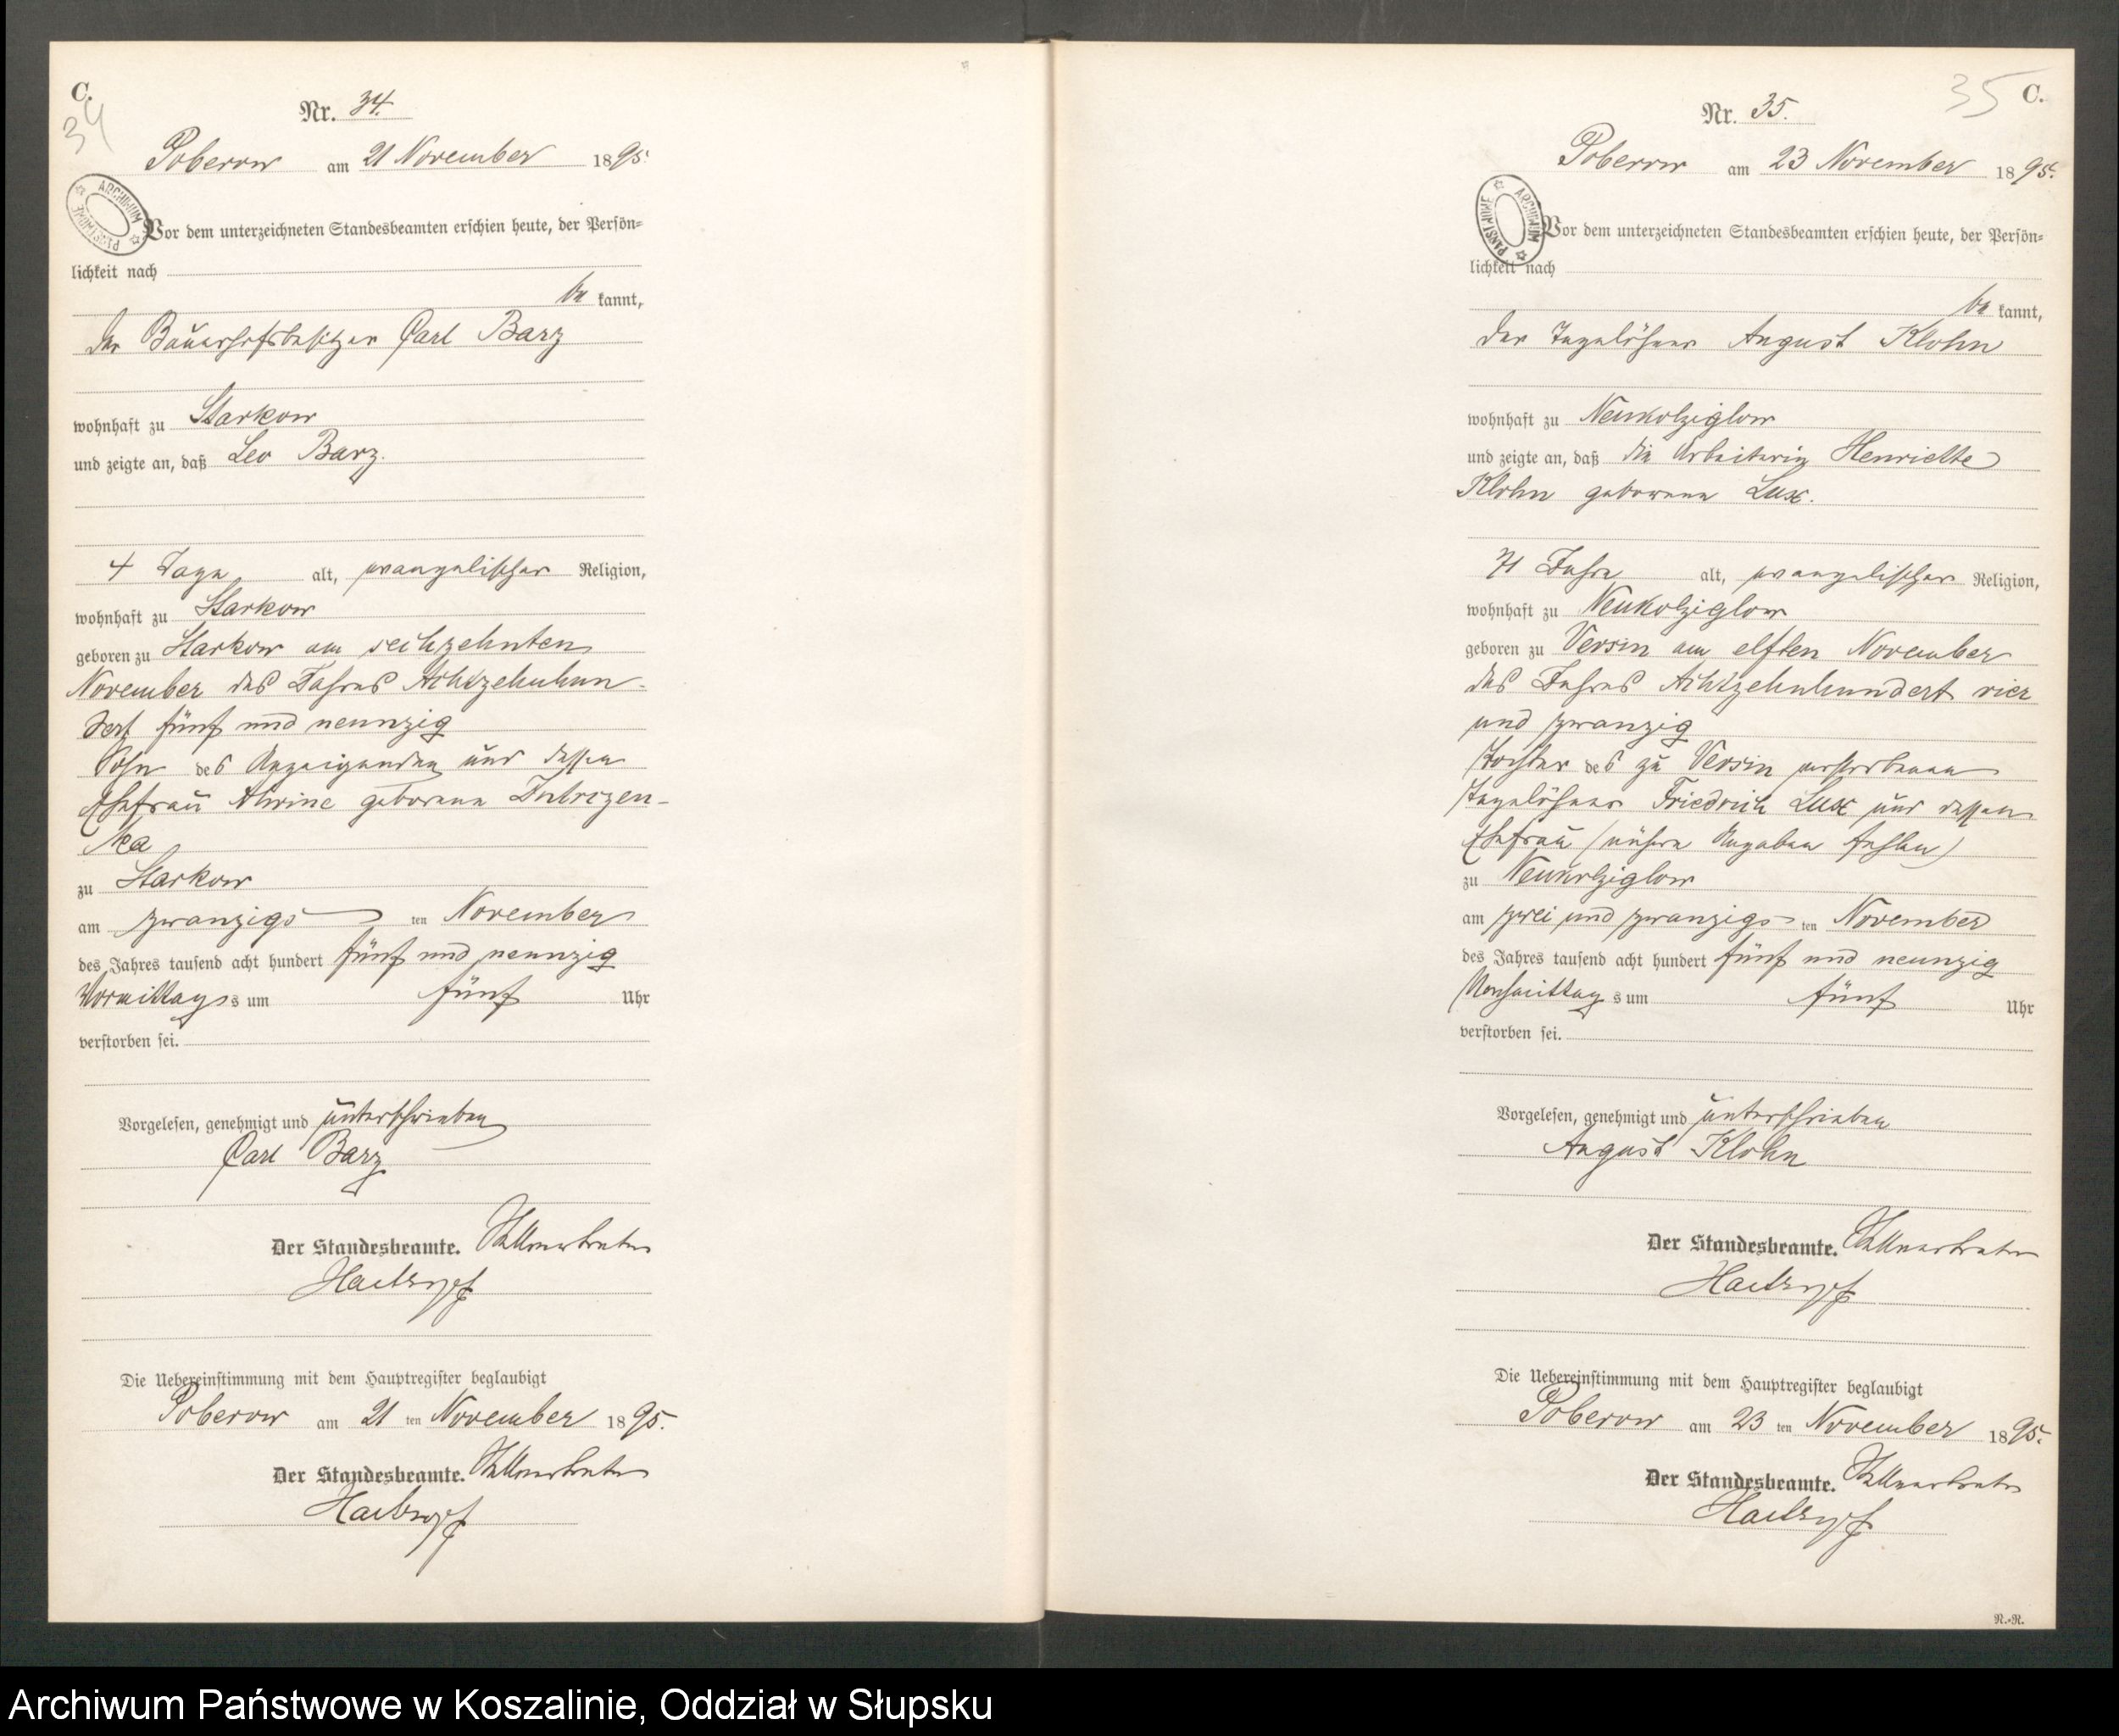 C.
34
Nr. 34.
Poberow am 21 November 1895.
ARCHIWUM PAŃSTWOWE
Vor dem unterzeichneten Standesbeamten erschien heute, der Persön=
lichkeit nach
be kannt,
der Bauerhofsbesitzer Carl Barz
wohnhaft zu Starkow
und zeigte an, daß Leo Barz.
4 Tage alt, evangelischer Religion,
wohnhaft zu Starkow
geboren zu Starkow am sechzehnten
November des Jahres Achtzehnhun-
dert fünf und neunzig
Sohn des Anzeigenden und dessen
Ehefrau Alwine geborene
zu Starkow
am zwanzigs ten November
des Jahres tausend acht hundert fünf und neunzig
Vormittags um fünf Uhr
verstorben sei.
Vorgelesen, genehmigt und unterschrieben
Carl Barz
Der Standesbeamte.
Die Uebereinstimmung mit dem Hauptregister beglaubigt
Poberow am 21 ten November 1895.
Der Standesbeamte.
35
C.
Nr. 35.
Poberow am 23 November 1895.
ARCHIWUM PAŃSTWOWE
Vor dem unterzeichneten Standesbeamten erschien heute, der Persön=
lichkeit nach
be kannt,
der Tagelöhner August Klohn
wohnhaft zu Neukolziglow
und zeigte an, daß die Arbeiterin Henriette
Klohn geborene Lux.
71 Jahre alt, evangelischer Religion,
wohnhaft zu Neukolziglow
geboren zu Versin am elften November
des Jahres Achtzehnhundert vier
und zwanzig
Tochter des zu Versin verstorbenen
Tagelöhner Friedrich Lux und dessen
Ehefrau (nähere Angaben fehlen)
zu Neukolziglow
am zwei und zwanzigs ten November
des Jahres tausend acht hundert fünf und neunzig
Nachmittag s um fünf Uhr
verstorben sei.
Vorgelesen, genehmigt und unterschrieben
August Klohn
Der Standesbeamte.
Die Uebereinstimmung mit dem Hauptregister beglaubigt
Poberow am 23 ten November 1895.
Der Standesbeamte.
R.-R.
Archiwum Państwowe w Koszalinie, Oddział w Słupsku